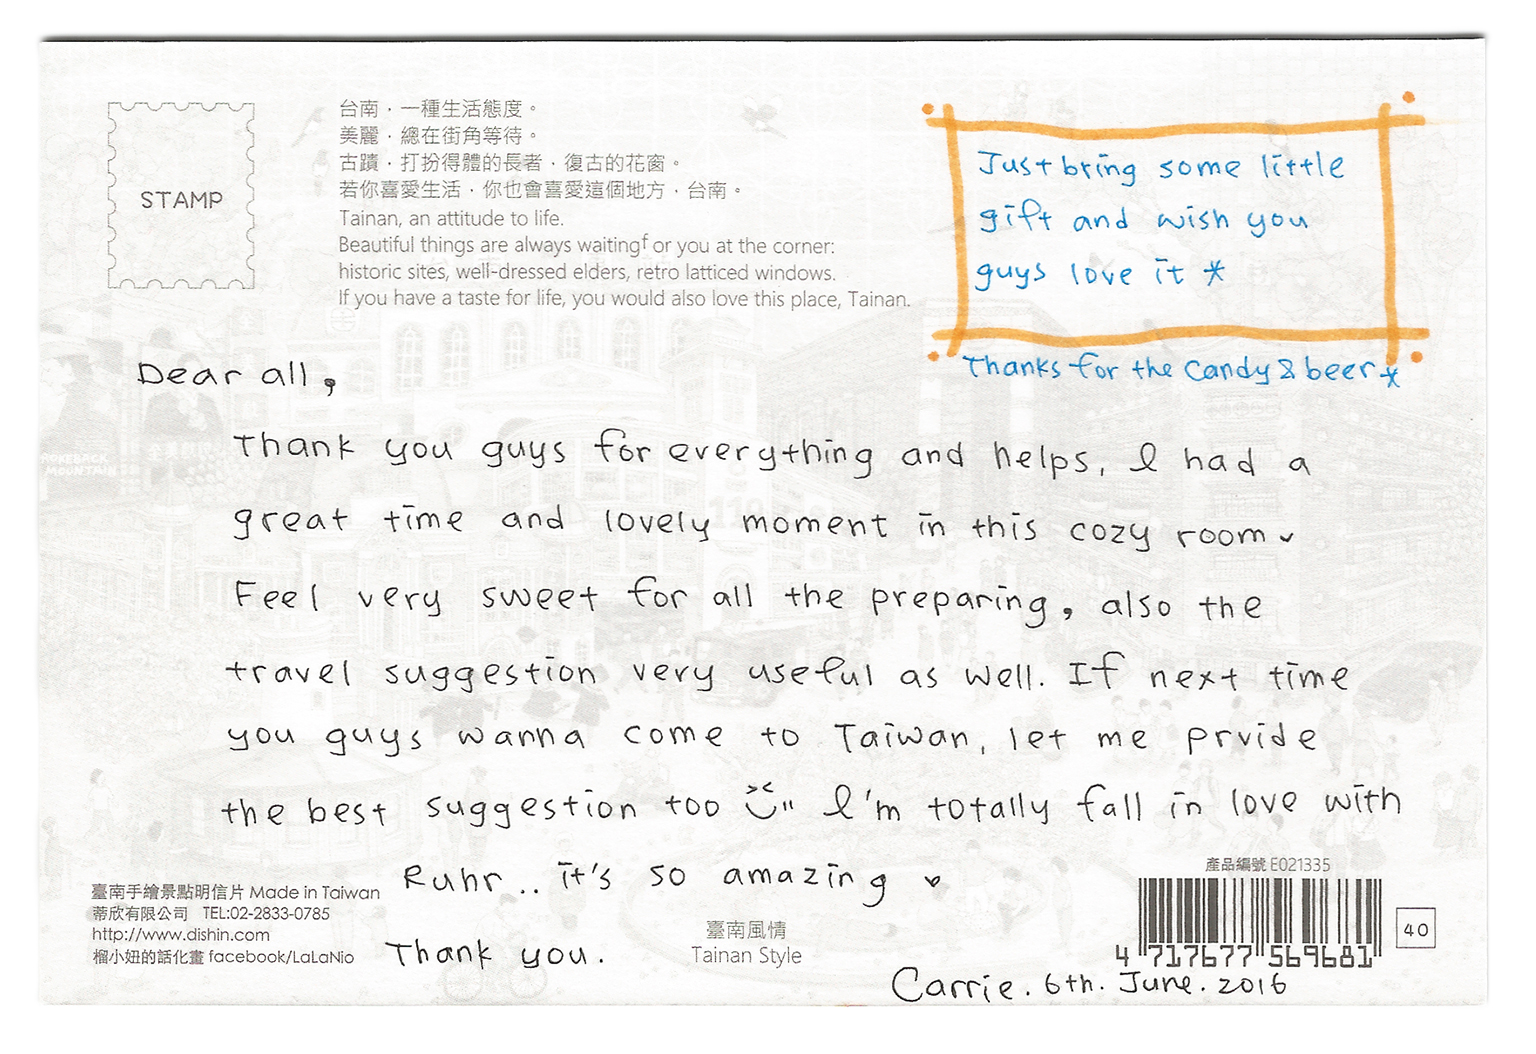 STAMP
台南，一種生活態度。
美麗，總在街角等待。
古蹟，打扮得體的長者，復古的花窗。
若你喜愛生活，你也會喜愛這個地方，台南。
Tainan, an attitude to life.
Beautiful things are always waitingf or you at the corner:
historic sites, well-dressed elders, retro latticed windows.
If you have a taste for life, you would also love this place, Tainan.
Just bring some little
gift and wish you
guys love it *
Thanks for the Candy & beer *
Dear all,
Thank you guys for everything and helps, I had a
great time and lovely moment in this cozy room
Feel very sweet for all the preparing, also the
travel suggestion very useful as well. If next time
you guys wanna come to Taiwan, let me prvide
the best suggestion too I'm totally fall in love with
Ruhr.. it's so amazing
Thank you.
Carrie. 6th. June. 2016
臺南手繪景點明信片 Made in Taiwan
蒂欣有限公司 TEL:02-2833-0785
http://www.dishin.com
榴小妞的話化畫 facebook/LaLaNio
臺南風情
Tainan Style
產品編號 E021335
4 717677 569681
40